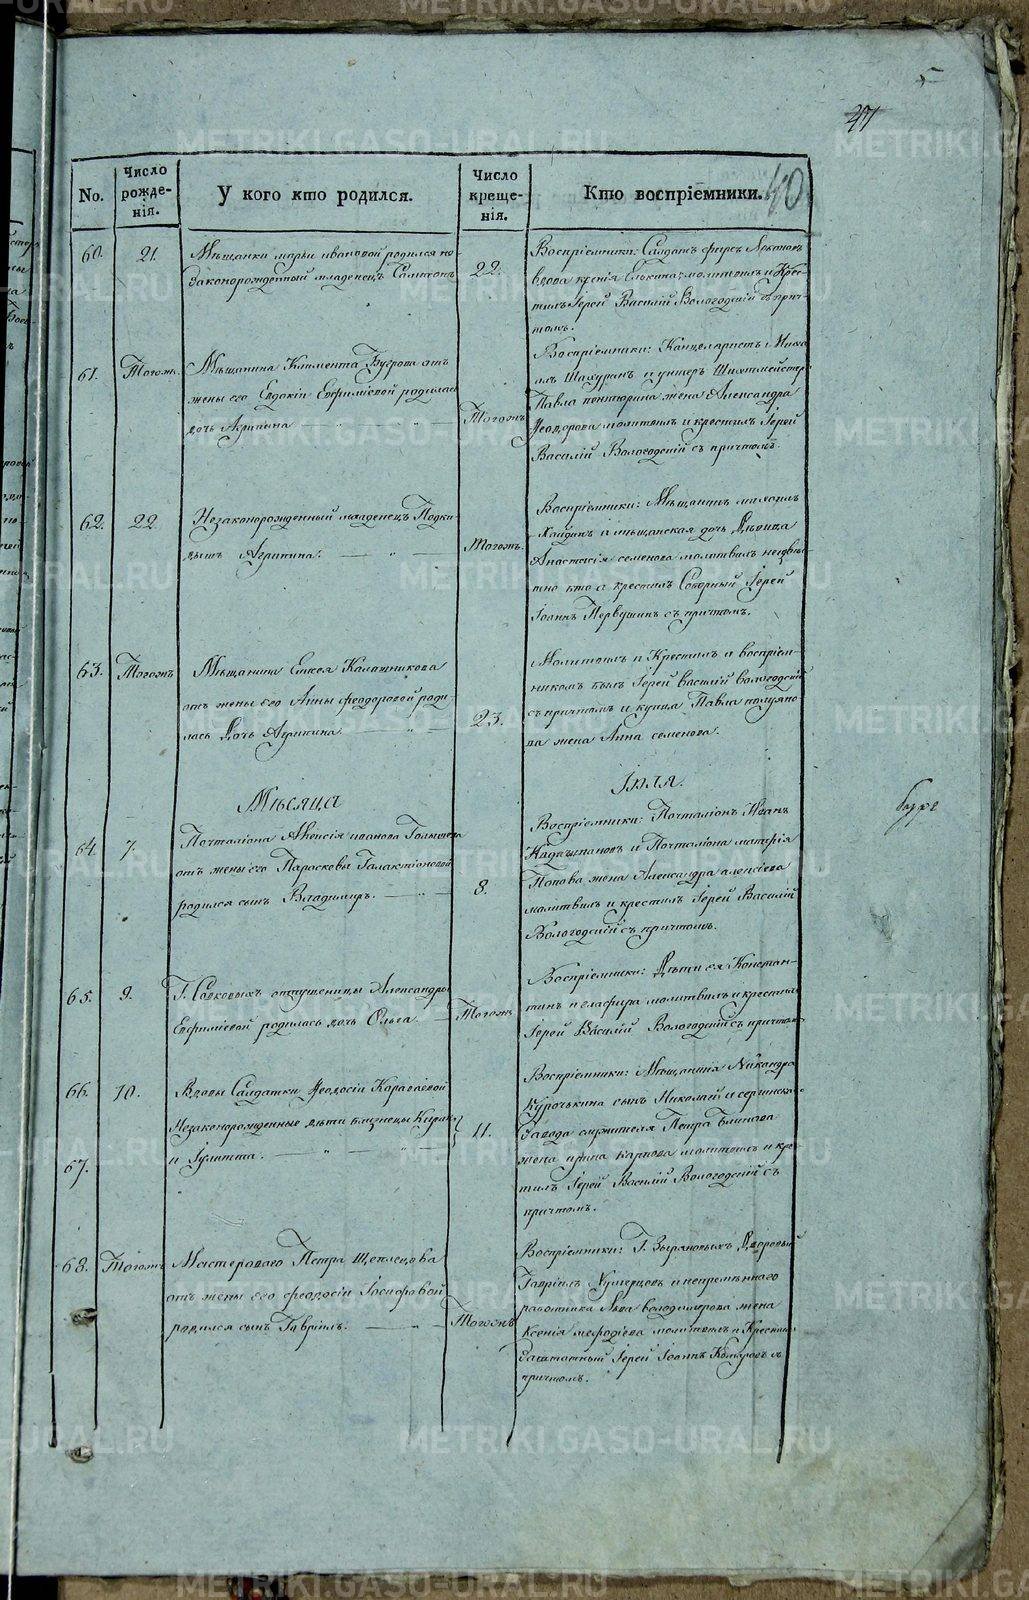 47
40
No.
Число рожде- нія.
У кого кто родился.
Число креще- нія.
Кто воспріемники.
60.
21.
Мѣщанки марьи ивановой родился не
законорожденный младенецъ Сампсонъ
22.
Воспріемники: Салдатъ
вдова ксенія Елькина молитвилъ и Крес-
тилъ Іерей Василій Вологодскій съ прич-
томъ.
61.
Тогожъ
Мѣщанина Климента Бугрова отъ
жены его Евдокіи Евфиміевой родилась
дочь Агрипина
Тогожъ
Воспріемники: Канцеляристъ Миха
илъ и унтеръ Шихтмейстера
Павла пентюрина жена Александра
Феодорова молитвилъ и крестилъ Іерей
Василій Вологодскій съ причтомъ.
62.
22
Незаконорожденный младенецъ Подки-
дышъ Агрипина.
Тогожъ.
Воспріемники: Мѣщанинъ михаилъ
и мѣщанская дочь Дѣвица
Анастасія семенова молитвилъ неизвѣс-
тно кто а крестилъ Соборный Іерей
Іоаннъ Первушинъ съ причтомъ.
63.
Тогожъ
Мѣщанина Елисея Колотникова
отъ жены его Анны феодоровой роди-
лась Дочь Агрипина.
23.
Молитвилъ и Крестилъ и воспріем-
никомъ былъ Іерей василій вологодскій
съ причтомъ и купца Павла
ва жена Анна семенова.
Мѣсяца
Іюля.
64.
7.
Почталіона Алексія иванова Голышева
отъ жены его Парасковьи Галактіоновой
родился сынъ Владимиръ.
8.
Воспріемники: Почталіонъ Иванъ
и Почталіона
Попова жена Александра алексіева
молитвилъ и крестилъ Іерей Василій
Вологодскій съ причтомъ.
65.
9.
Г. отпущеницы Александры
Евфиміевой родилась дочь Ольга.
Тогожъ
Воспріемники: Дѣти ея Констан-
тинъ и глафира молитвилъ и крестилъ
Іерей Василій Вологодскій съ причтомъ
66.
67.
10.
Вдовы Салдатки Феодосіи Каравдевой
Незаконорожденные дѣти близнецы Кирикъ
и Іулитта.
11.
Воспріемники: Мѣщанина Никандра
Курочькина сынъ Николай и сергинска-
Завода служителя Петра Блинова
жена ирина карпова молитвилъ и кре-
тилъ Іерей Василій Вологодскій съ
причтомъ.
68.
Тогожъ
Мастероваго Петра Щеплецова
отъ жены его феодосіи Іосифовой
родился сынъ Гавріилъ.
Тогожъ
Воспріемники: Г. Зыряновыхъ Дворовый
Гавріилъ и непремѣннаго
работника Якова володимерова жена
Ксенія мефодіева молитвилъ и Крестилъ
Заштатный Іерей Іоаннъ Комаровъ съ
причтомъ.
METRIKI.GASO-URAL.RU